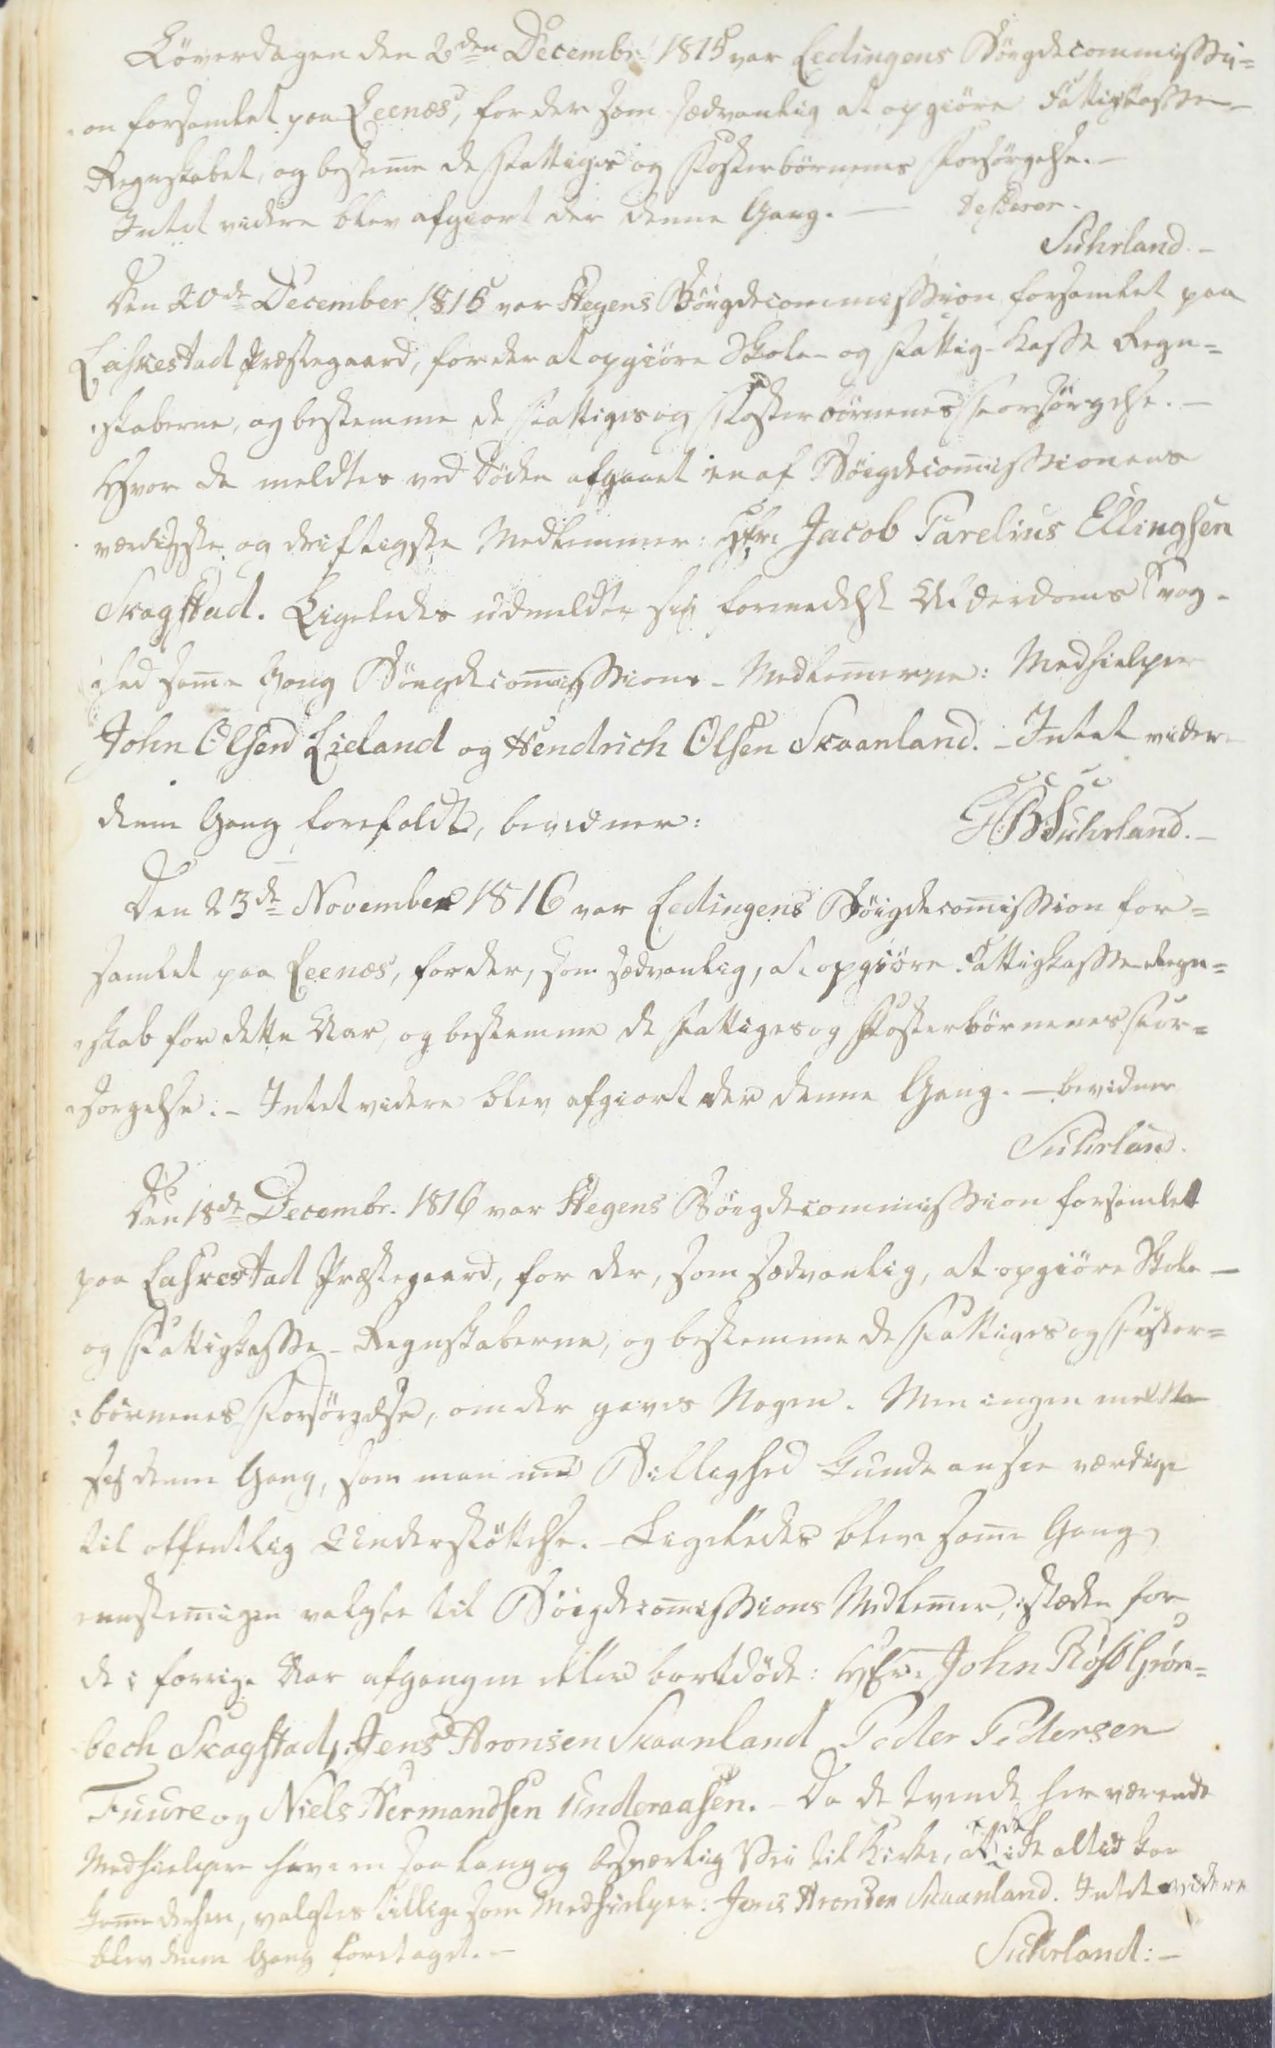 Löverdagen den 2den Decembr. 1815 var Eedingens Böigdecommissi-
on forsamlet paa Leenæs, for der som sædvanlig at opgiöre Fattigkasse-
Regnskabet, og bestem̅e de Fattiges og Fosterbörnenes Forsörgelse. –
Intet videre blev afgiort der denne Gang. –
Suhrland. –
Den 20de December 1815 var Hegens Böigdecommission forsamlet paa
Laskestad Præstegaard, for der at opgiöre Skole- og Fattig-Kasse Regn-
skaberne, og bestemme de Fattiges og Fosterbörnenes Forsörgelse. –
Hvor da meldtes ved Döden afgaaet en af Böigdecom̅issionens
værdigste og driftigste Medlemmer: Hr. Jacob Parelius Ellingsen
Skagstad. Ligeledes udmeldte sig formedelst Alderdoms Svag-
hed sam̅e Gang Böigdecom̅issions-Medlem̅erne: Medhielper
John Olsen Lieland og Hendrich Olsen Skaanland. – Intet videre
denne Gang forefaldt, bevidner:
G. B. Suhrland. –
Den 23de November 1816 var Eedingens Böigdecom̅ission for-
samlet paa Leenæs, for der, som sædvanlig, at opgiöre Fattigkasse Regn-
skab for dette Aar, og bestemme de Fattiges og Fosterbörnenes For-
sorgelse. – Intet videre blev afgiort der denne Gang. – bevidner
Suhrland.
Den 18de Decembr. 1816 var Hegens Böigdecommission forsamlet
paa Laskestad Præstegaard, for der, som sædvanlig, at opgiöre Skole-
og Fattigkasse-Regnskaberne, og bestemme de Fattiges og Foster-
börnenes Forsörgelse, om der gaves Nogen. Men ingen meldte
sig denne Gang, som man med Billighed kunde ansee værdige
til offentlig Understöttelse. – Ligeledes bleve sam̅e Gang
eenstem̅igen valgte til Böigdecom̅issions Medlem̅er, istæden for
de i forrige Aar afgangen eller bortdöde: Hr. John Röst Grön-
bech Skagstad, Jens Aronsen Skaanland Peder Pedersen
Fuure og Niels Hermandsen Underaasen. – Da de tvende her værende
Medhielpere have en saa lang og besværlig Vei til Kirke, at de ikke altid kan
kom̅e dersen, valgtes tillige som Medhielper: Jens Aronsen Skaanland. Intet videre
blev denne Gang foretaget. –
Suhrland: –